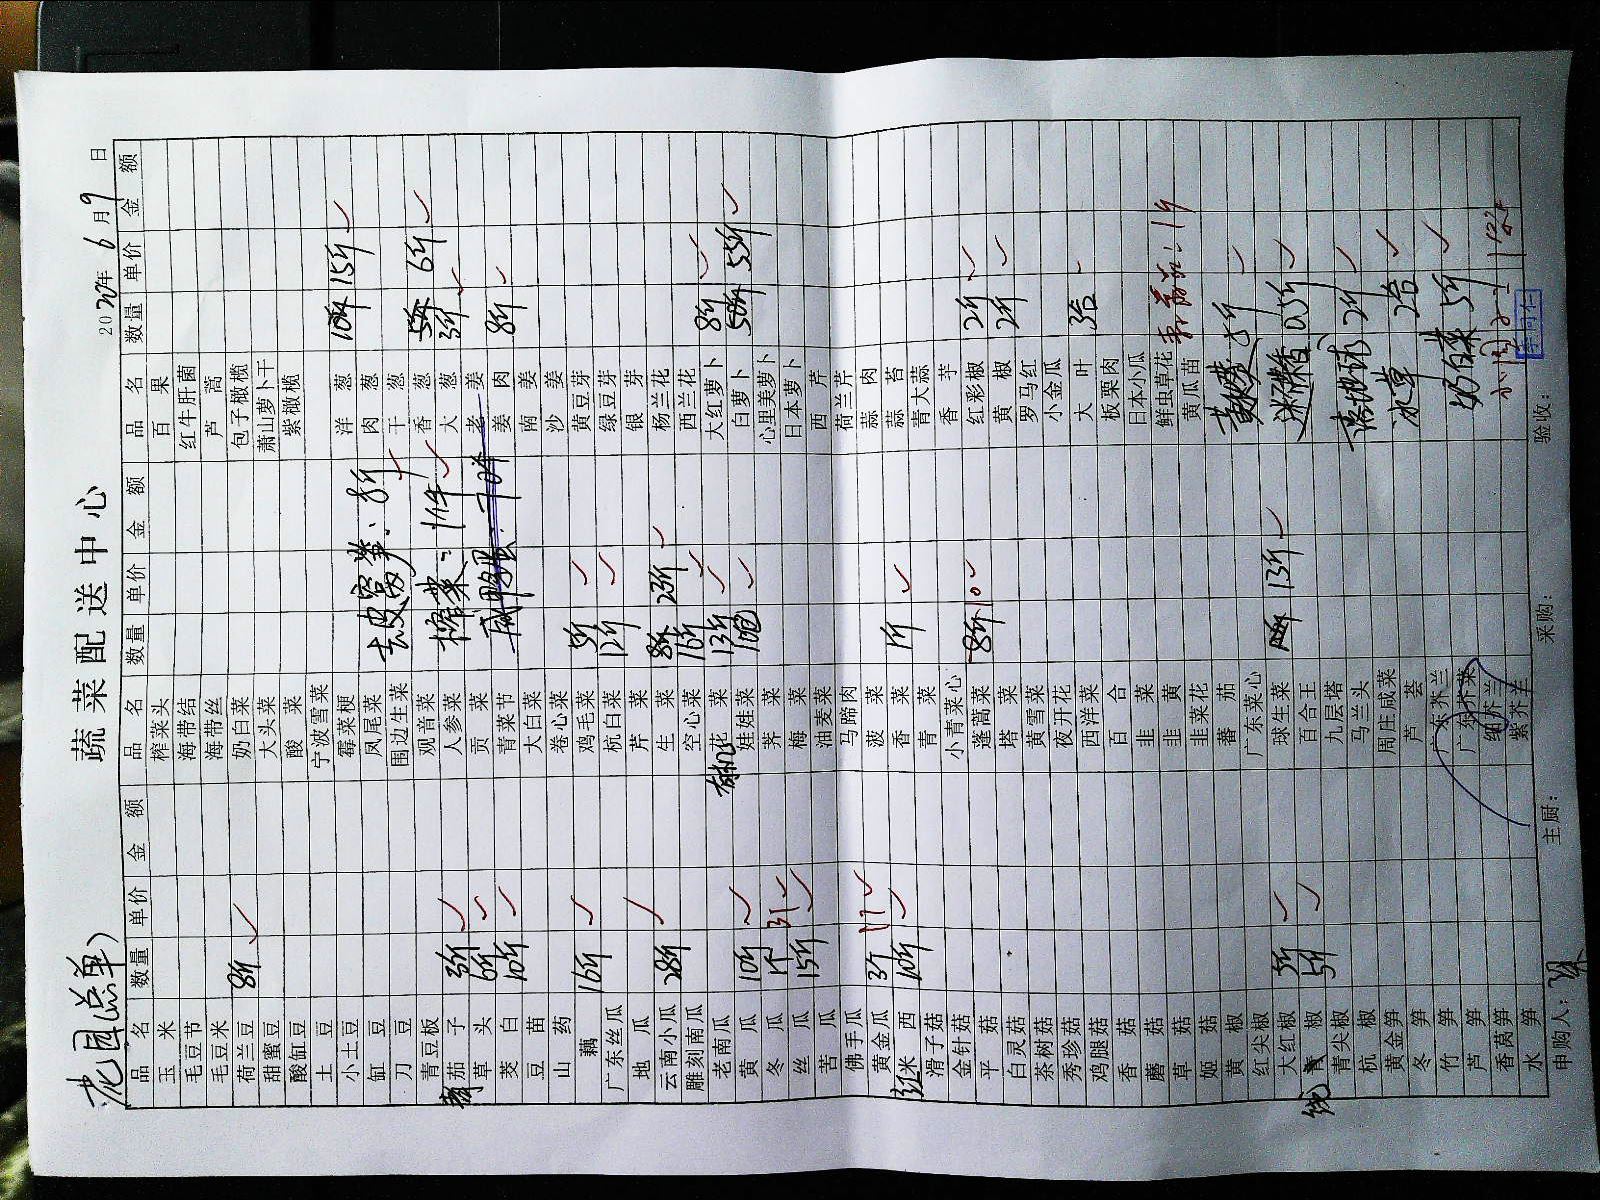 老园(总单)
蔬菜配送中心
2020年6月9日
品名 数量 单价 金额 品名 数量 单价 金额 品名 数量 单价 金额
玉米 榨菜头 百果
毛豆节 海带结 红牛肝菌
毛豆米 海带丝 芦蒿
荷兰豆 8斤 奶白菜 包子橄榄
甜蜜豆 大头菜 萧山萝卜干
酸缸豆 酸菜 紫橄榄
土豆 宁波雪菜
小土豆 霉菜梗 洋葱 10斤 15斤
缸豆 凤尾菜 去皮莴笋:8斤 肉葱
刀豆 围边生菜 干葱
青豆板 观音菜 榨菜:1件 香葱 5斤 6斤
茄子 3斤 人参菜 大葱 3斤
草头 6斤 贡菜 咸鸭蛋: 老姜
茭白 10斤 青菜节 姜肉 8斤
豆苗 大白菜 南姜
山药 卷心菜 沙姜
藕 16斤 鸡毛菜 5斤 黄豆芽
广东丝瓜 杭白菜 12斤 绿豆芽
地瓜 芹菜 银芽
云南小瓜 28斤 生菜 8斤 23斤 杨兰花
雕刻南瓜 空心菜 16斤 西兰花
老南瓜 有机花菜 13斤 大红萝卜 8斤
黄瓜 10斤 娃娃菜 10包 白萝卜 50斤 55斤
冬瓜 1斤 31 荠菜 心里美萝卜
丝瓜 15斤 梅菜 日本萝卜
苦瓜 油麦菜 西芹
佛手瓜 马蹄肉 荷兰芹
黄金瓜 3斤 17 菠菜 蒜肉
红米西 10斤 香菜 1斤 蒜苔
滑子菇 青菜 青大蒜
金针菇 小青菜心 香芋
平菇 蓬蒿菜 8斤 10 红彩椒 2斤
白灵菇 塔菜 黄椒 2斤
茶树菇 黄雪菜 罗马红
秀珍菇 夜开花 小金瓜
鸡腿菇 西洋菜 大叶 3合
香菇 百合 板栗肉
蘑菇 韭菜 日本小瓜
草菇 韭黄 鲜虫草花
姬菇 韭菜花 黄瓜苗
黄椒 番茄
红尖椒 广东菜心
大红椒 5斤 球生菜 13斤 迷迭香 0.5斤
青椒 5斤 百合王
青尖椒 九层塔
杭椒 马兰头 2斤
黄金笋 周庄咸菜
冬笋 芦荟 冰草 2合
竹笋 广东芥兰
芦笋 广东芥菜 奶白菜 5斤
香莴笋 红芥兰
水笋 紫芥羊
申购人: 主厨: 采购: 验收: